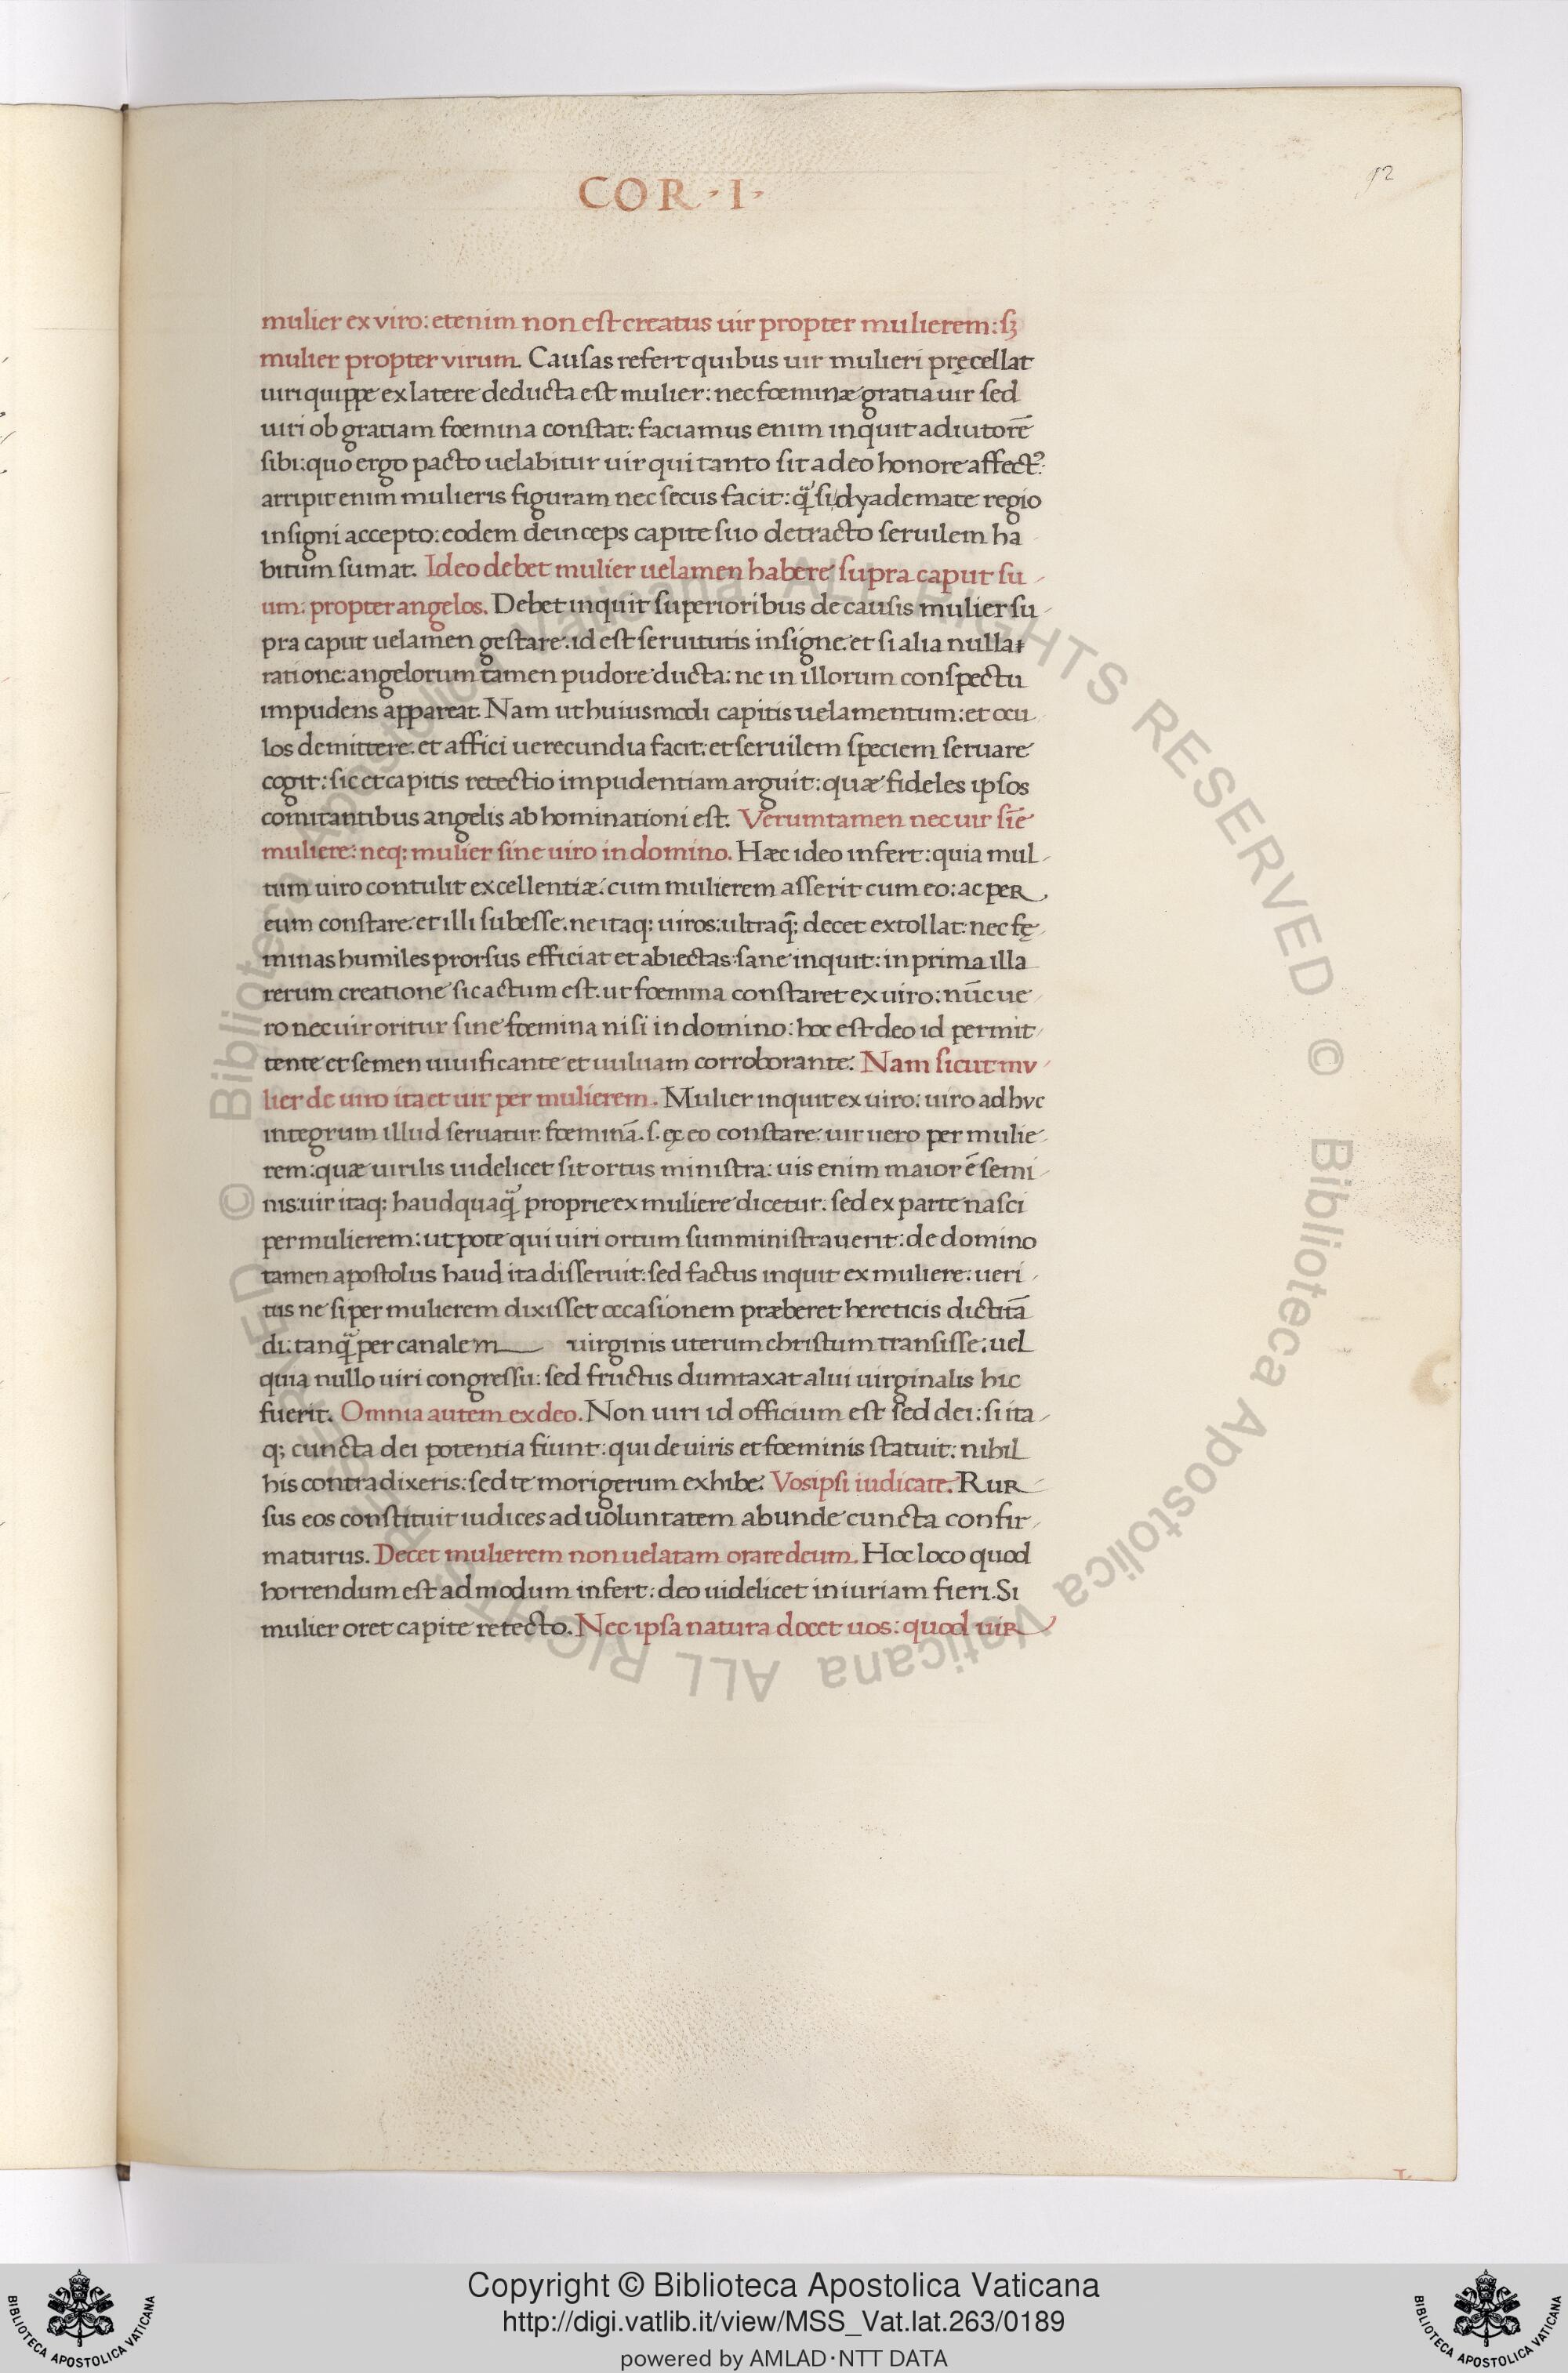 COR · I ·
92
mulier ex viro: etenim non est creatus uir propter mulierem: sꝫ
mulier propter virum. Causas refert quibus uir mulieri pręcellat
uiri quippe ex latere deducta est mulier: nec fœminæ gratia uir sed
uiri ob gratiam fœmina constat: faciamus enim inquit adiutorē
sibi: quo ergo pacto uelabitur uir qui tanto sit a deo honore affectꝰ:
arripit enim mulieris figuram nec secus facit: q̃ si dyademate regio
insigni accepto: eodem deinceps capite suo detracto seruilem ha
bitum sumat. Ideo debet mulier uelamen habere supra caput su
um: propter angelos. Debet inquit superioribus de causis mulier su
pra caput uelamen gestare: id est seruitutis insigne. et si alia nulla
ratione: angelorum tamen pudore ducta: ne in illorum conspectu
impudens appareat. Nam ut huiusmodi capitis uelamentum: et ocu
los demittere. et affici uerecundia facit: et seruilem speciem seruare
cogit: sic et capitis retectio impudentiam arguit: quæ fideles ipsos
comitantibus angelis abhominationi est. Verumtamen nec uir sīe
muliere: neq: mulier sine uiro in domino. Hæc ideo infert: quia mul
tum uiro contulit excellentiæ: cum mulierem asserit cum eo: ac per
eum constare. et illi subesse. ne itaq: uiros: ultraq̃: decet extollat: nec fę
minas humiles prorsus efficiat et abiectas: sane inquit: in prima illa
rerum creatione sic actum est. ut fœmina constaret ex uiro: nūc ue
ro nec uir oritur sine fœmina nisi in domino: hoc est deo id permit
tente et semen uiuificante et uuluam corroborante. Nam sicut mv
lier de uiro ita et uir per mulierem. Mulier inquit ex uiro: uiro adhvc
integrum illud seruatur. fœminā. s. ex eo constare: uir uero per mulie
rem: quæ uirilis uidelicet sit ortus ministra: uis enim maior ē semi
nis: uir itaq: haudquaq̃ proprie ex muliere dicetur. sed ex parte nasci
per mulierem: utpote qui uiri ortum sumministrauerit: de domino
tamen apostolus haud ita disseruit: sed factus inquit ex muliere: ueri
tus ne si per mulierem dixisset occasionem præberet hereticis dictitā
di: tanq̃ per canalem uirginis uterum christum transisse: uel
quia nullo uiri congressu: sed fructus dumtaxat alui uirginalis hic
fuerit. Omnia autem ex deo. Non uiri id officium est sed dei: si ita
q; cuncta dei potentia fiunt: qui de uiris et fœminis statuit: nihil
his contradixeris: sed te morigerum exhibe. Vos ipsi iudicate. Rur
sus eos constituit iudices ad uoluntatem abunde cuncta confir
maturus. Decet mulierem non uelatam orare deum. Hoc loco quod
horrendum est admodum infert: deo uidelicet iniuriam fieri. Si
mulier oret capite retecto. Nec ipsa natura docet uos: quod uir
© Biblioteca Apostolica Vaticana ALL RIGHTS RESERVED © Biblioteca Apostolica Vaticana ALL RIGHTS RESERVED
Copyright © Biblioteca Apostolica Vaticana
http://digi.vatlib.it/view/MSS_Vat.lat.263/0189
powered by AMLAD·NTT DATA
BIBLIOTECA APOSTOLICA VATICANA
BIBLIOTECA APOSTOLICA VATICANA